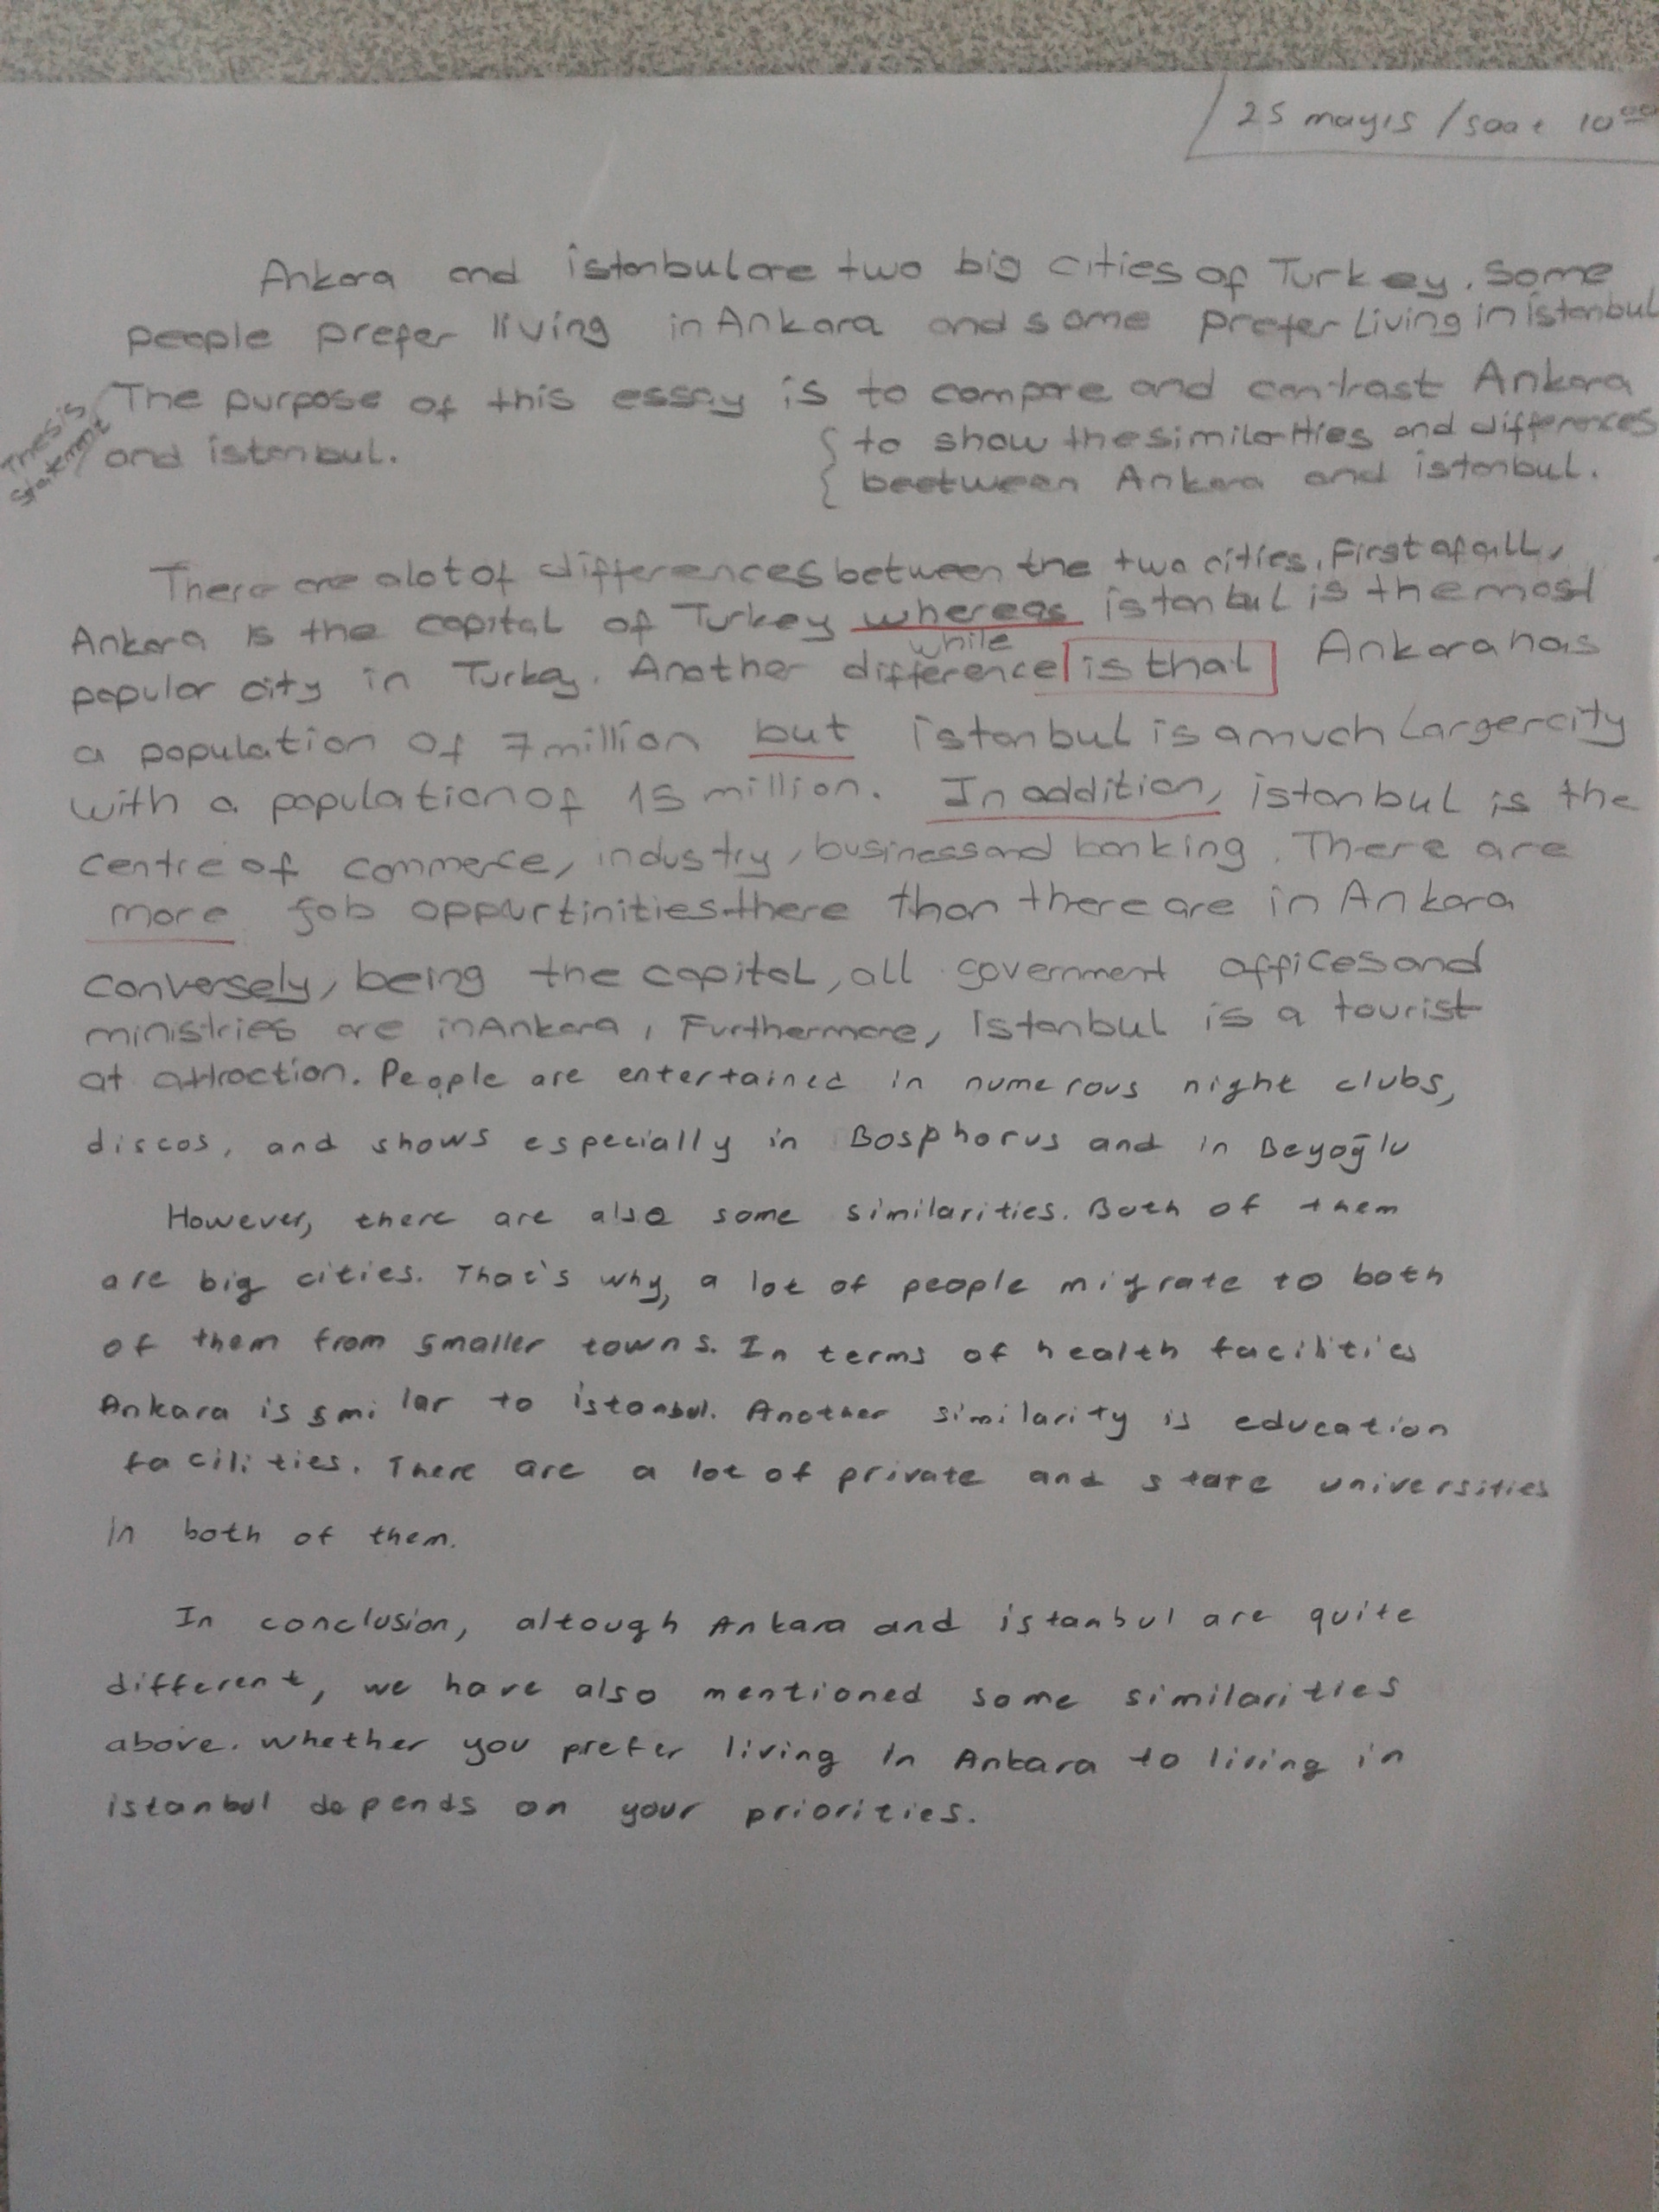 25 mayıs / saat 10⁰⁰
Ankara and istanbul are two big cities of Turkey. Some
people prefer living in Ankara and some prefer living in istanbul
The purpose of this essay is to compare and contrast Ankara
and istanbul.
Thesis
statement
{ to show the similarities and differences
{ beetween Ankara and istanbul.
There are a lot of differences between the two cities. First of all,
Ankara is the capital of Turkey whereas istanbul is the most
while
popular city in Turkey. Another difference is that Ankara has
a population of 7 million but istanbul is a much larger city
with a population of 15 million. In addition, istanbul is the
centre of commerce, industry, business and banking. There are
more job oppurtinities there than there are in Ankara
conversely, being the capital, all government offices and
ministries are in Ankara, Furthermore, istanbul is a tourist
at attraction. People are entertained in numerous night clubs,
discos, and shows especially in Bosphorus and in Beyoğlu
However, there are also some similarities. Both of them
are big cities. That's why, a lot of people migrate to both
of them from smaller towns. In terms of health facilities
Ankara is smilar to istanbul. Another similarity is education
facilities. There are a lot of private and state universities
in both of them.
In conclusion, altough Ankara and istanbul are quite
different, we have also mentioned some similarities
above. Whether you prefer living in Ankara to living in
istanbul depends on your priorities.